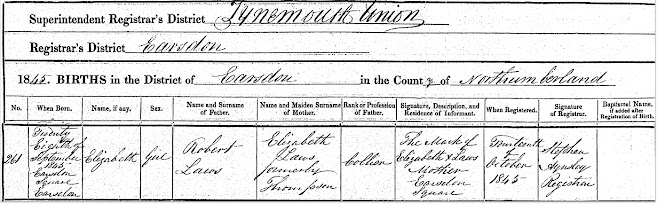 Superintendent Registrar's District Tynemouth Union
Registrar's District Earsdon
1845. BIRTHS in the District of Earsdon in the County of Northumberland
No. When Born. Name, if any. Sex. Name and Surname of Father. Name and Maiden Surname of Mother. Rank or Profession of Father. Signature, Description, and Residence of Informant. When Registered. Signature of Registrar. Baptismal Name, if added after Registration of Birth.
261
Twenty Eighth of September 1845 Earsdon Square Earsdon
Elizabeth
Girl
Robert Laws
Elizabeth Laws formerly Thompson
Collier
The Mark of Elizabeth X Laws Mother Earsdon Square
October 1845
Stephen Aynsley Registrar